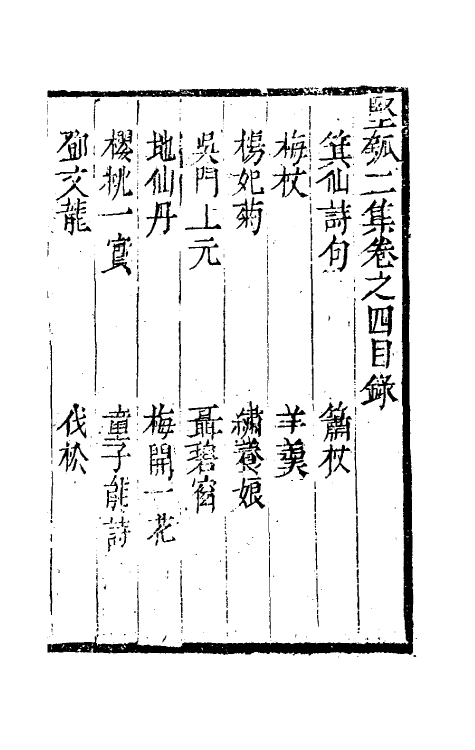 堅瓠二集卷之四目錄
箕仙詩句　簫杖
梅杖　羊羹
楊妃菊　繡養娘
吳門上元　聶碧窗
地仙丹　梅開一花
櫻桃一實　童子能詩
鄧文龍　伐松